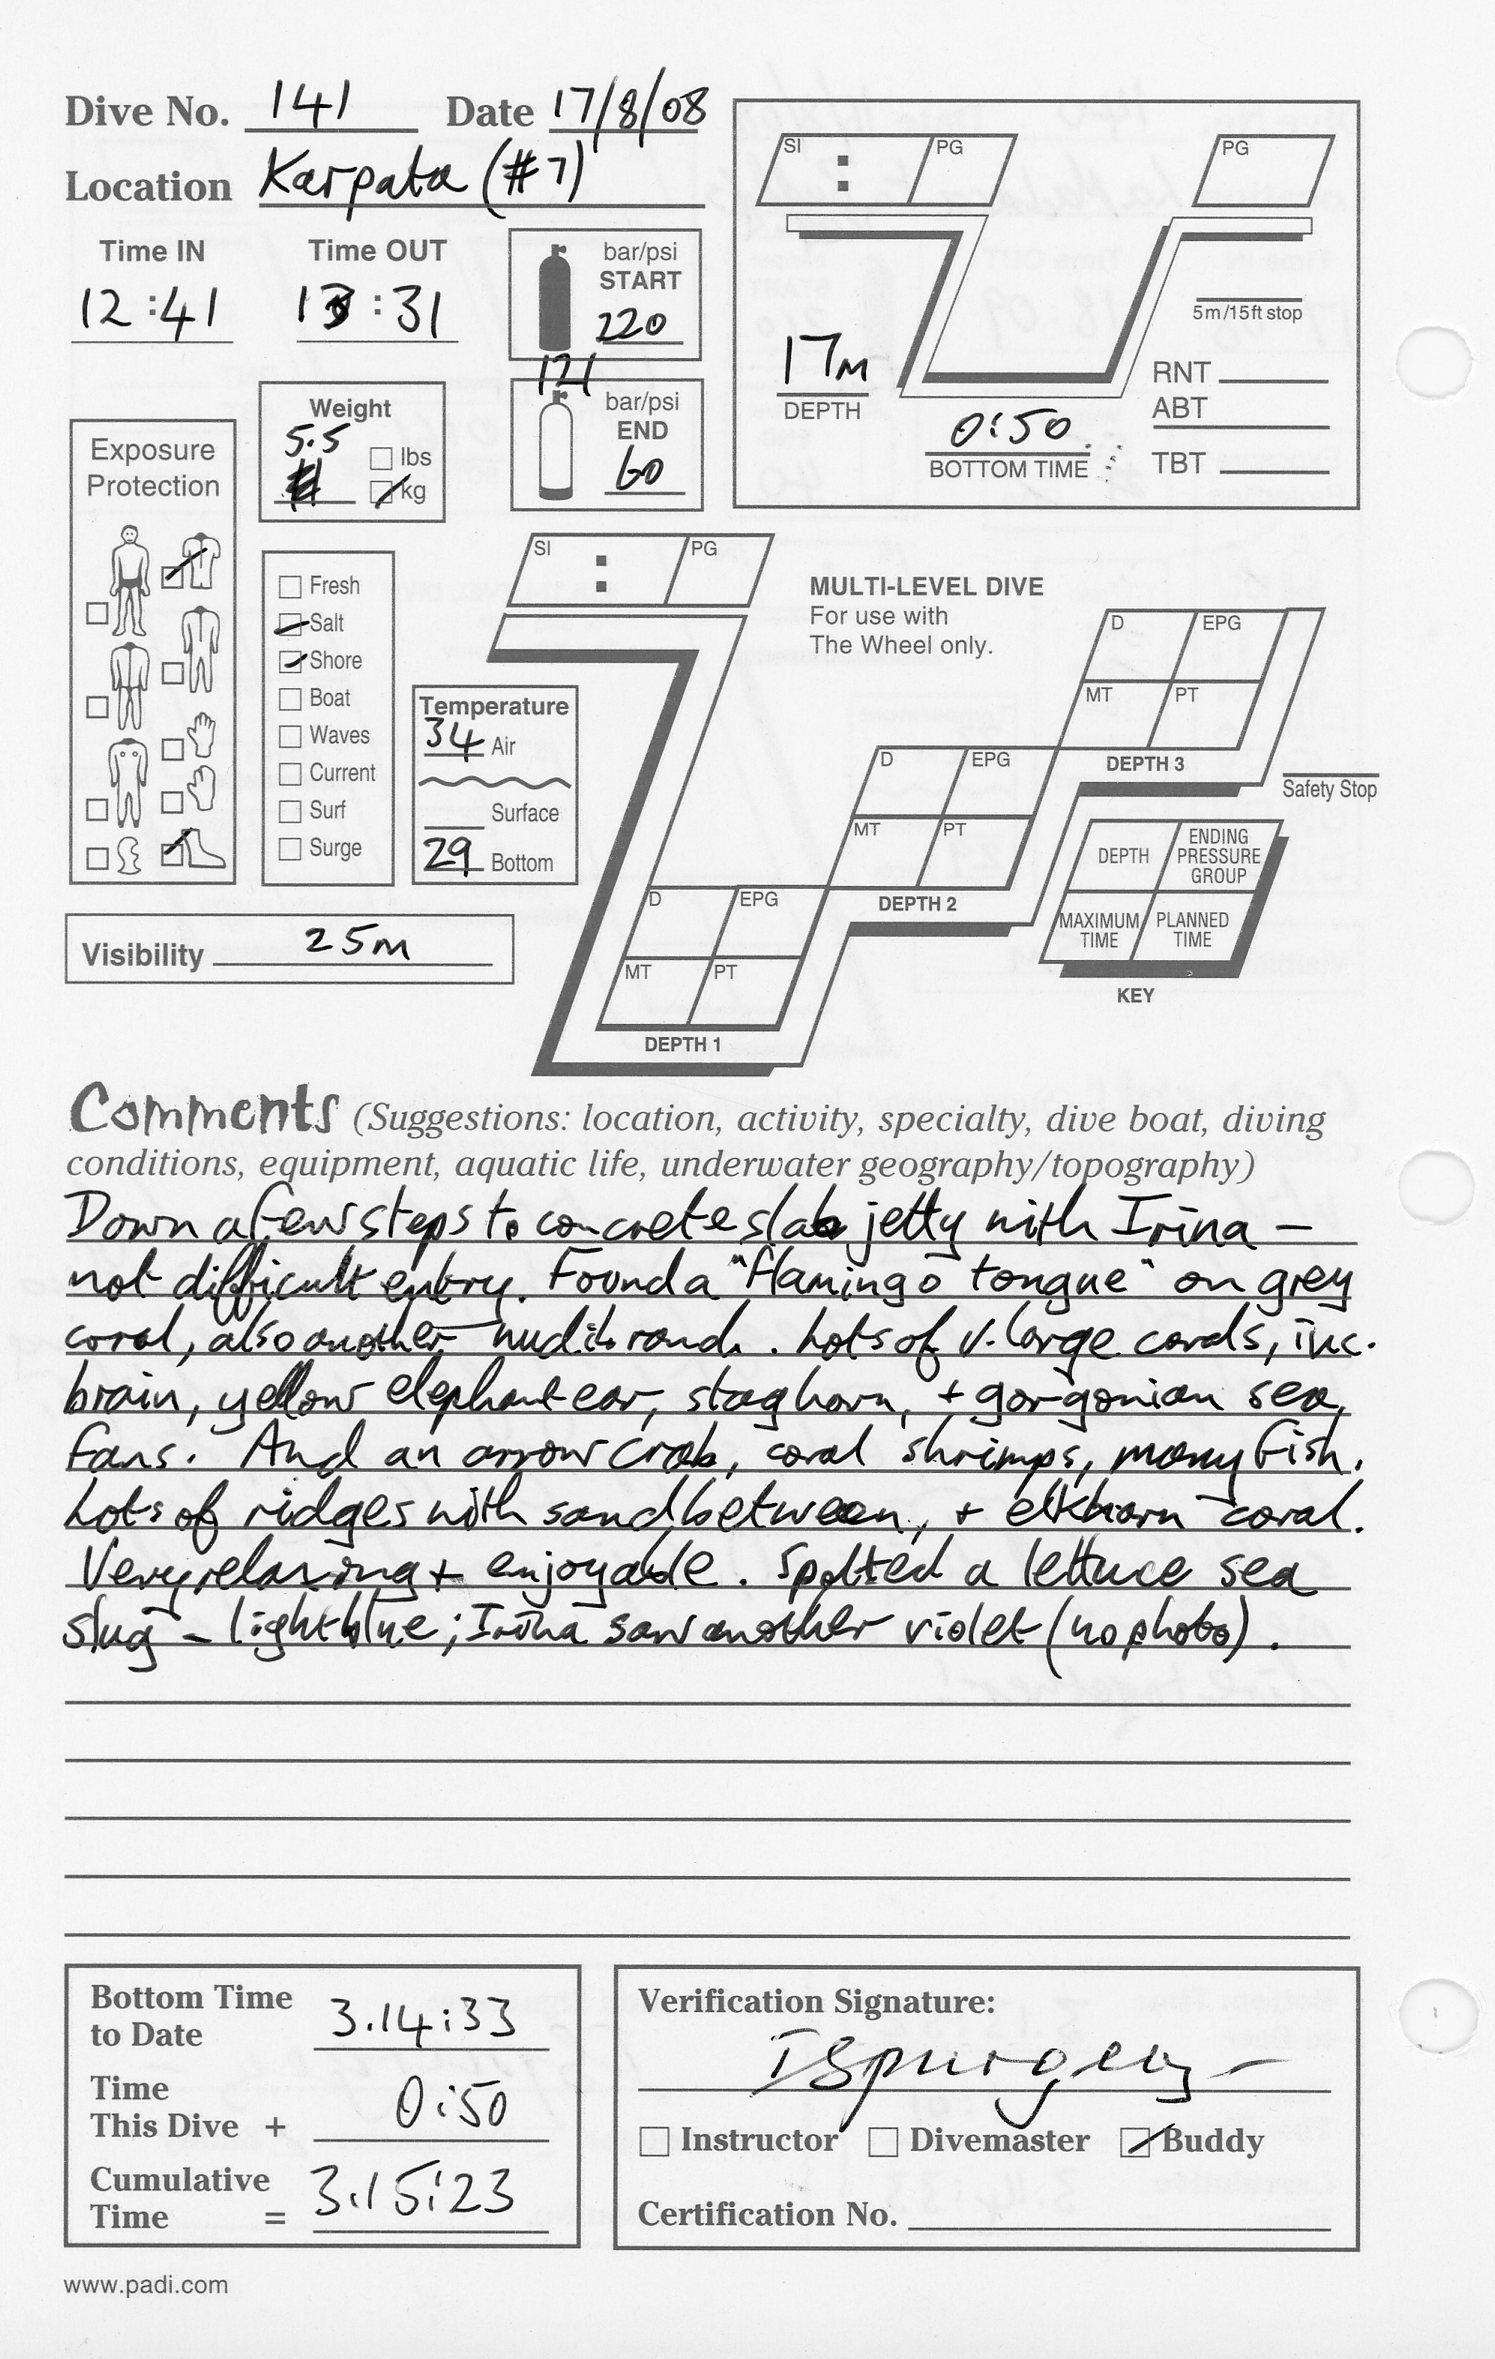 Dive No. 141 Date 17/8/08
Location Karpata (#7)
Time IN Time OUT
12:41 13:31
bar/psi
START
220
121
bar/psi
END
60
Weight
5.5
lbs
kg
Exposure
Protection
Fresh
Salt
Shore
Boat
Waves
Current
Surf
Surge
Temperature
34 Air
Surface
29 Bottom
Visibility 25m
SI : PG
PG
5m/15ft stop
17m
DEPTH
0:50
BOTTOM TIME
RNT
ABT
TBT
SI : PG
MULTI-LEVEL DIVE
For use with
The Wheel only.
D EPG
MT PT
DEPTH 3
Safety Stop
D EPG
MT PT
DEPTH 2
D EPG
MT PT
DEPTH 1
DEPTH
ENDING
PRESSURE
GROUP
MAXIMUM
TIME
PLANNED
TIME
KEY
Comments (Suggestions: location, activity, specialty, dive boat, diving
conditions, equipment, aquatic life, underwater geography/topography)
Down a few steps to concrete slab jetty with Irina –
not difficult entry. Found a "flamingo tongue" on grey
coral, also another nudibranch. Lots of v. large corals, inc.
brain, yellow elephant ear, staghorn, + gorgonian sea
fans. And an arrow crab, coral shrimps, many fish.
Lots of ridges with sand between, + elkhorn coral.
Very relaxing + enjoyable. Spotted a lettuce sea
slug – light blue; Irina saw another violet (no photo).
Bottom Time
to Date 3.14:33
Time
This Dive + 0:50
Cumulative
Time = 3.15:23
Verification Signature:
ISpurgeon
Instructor Divemaster Buddy
Certification No.
www.padi.com